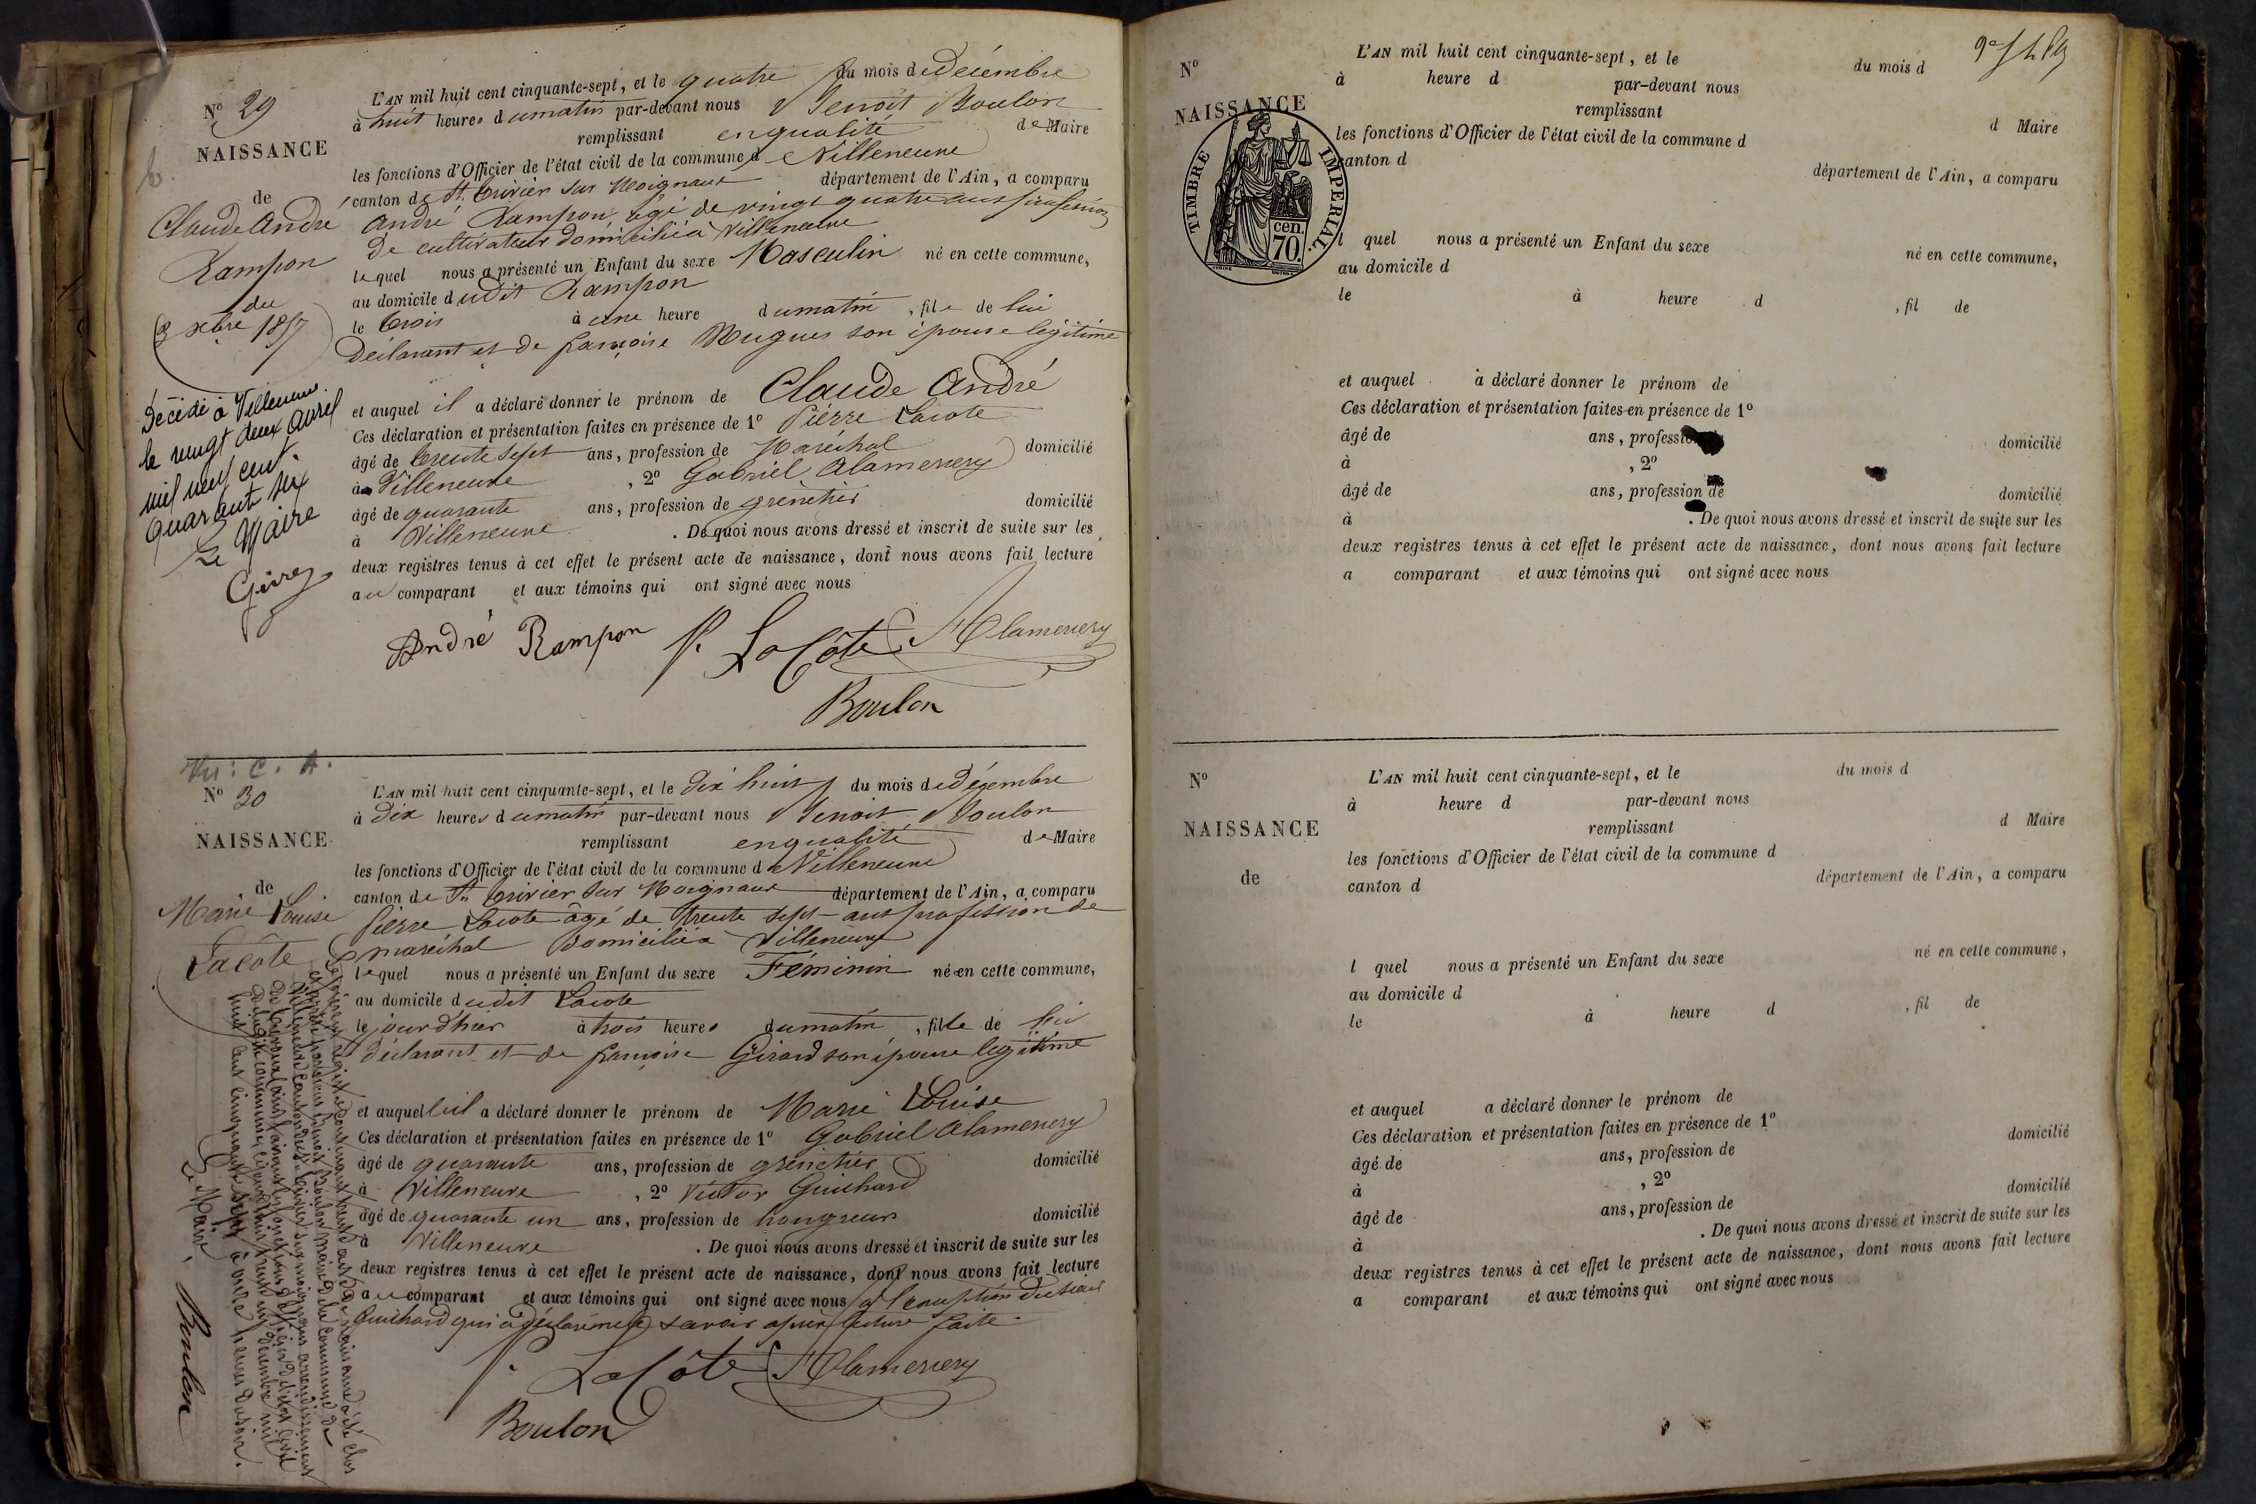 N° 29
NAISSANCE
de
Claude André
Rampon
du
3 xbre 1857
Décédé à Villeneuve
le vingt deux avril
mil neuf cent
quarant six
Le Maire
L'AN mil huit cent cinquante-sept, et le quatre du mois de Décembre
à huit heures du matin par-devant nous Benoit Boulon
remplissant en qualité de Maire
les fonctions d'Officier de l'état civil de la commune d Villeneuve
canton de St. Trivier sur Moignans département de l'Ain, a comparu
André Rampon, âgé de vingt quatre ans profession
de cultivateur domicilié à Villeneuve
lequel nous a présenté un Enfant du sexe Masculin né en cette commune,
au domicile dudit Rampon
le trois à une heure du matin, fils de lui
déclarant et de françoise Mugues son épouse légitime
et auquel il a déclaré donner le prénom de Claude André
Ces déclaration et présentation faites en présence de 1° Pierre Lacote
âgé de trente sept ans, profession de Maréchal domicilié
à Villeneuve, 2° Gabriel Alamercery
âgé de quarante ans, profession de grènetier domicilié
à Villeneuve. De quoi nous avons dressé et inscrit de suite sur les
deux registres tenus à cet effet le présent acte de naissance, dont nous avons fait lecture
au comparant et aux témoins qui ont signé avec nous
André Rampon P. LaCôte Alamercery
Boulon
Vu : C. A.
N° 30
NAISSANCE
de
Marie Louise
Lacôte
L'AN mil huit cent cinquante-sept, et le dix huit du mois de Décembre
à dix heures du matin par-devant nous Benoit Boulon
remplissant en qualité de Maire
les fonctions d'Officier de l'état civil de la commune de Villeneuve
canton de St. Trivier sur Moignans département de l'Ain, a comparu
Pierre Lacote âgé de trente sept ans profession de
maréchal domicilié à Villeneuve
lequel nous a présenté un Enfant du sexe Féminin né en cette commune,
au domicile dudit Lacote
le jourd'hier à trois heures du matin, fille de lui
déclarant et de françoise Girard son épouse legitime
et auquel il a déclaré donner le prénom de Marie Louise
Ces déclaration et présentation faites en présence de 1° Gabriel Alamercery
âgé de quarante ans, profession de grènetier domicilié
à Villeneuve, 2° Victor Guichard
âgé de quarante un ans, profession de hongreur domicilié
à Villeneuve. De quoi nous avons dressé et inscrit de suite sur les
deux registres tenus à cet effet le présent acte de naissance, dont nous avons fait lecture
au comparant et aux témoins qui ont signé avec nous à l'exception du sieur
Guichard qui a déclaré ne le savoir après lecture faite.
P. LaCôte Alamercery
Boulon
Le présent registre contenant trente actes de naissance a été clos
et arrêté par nous Benoit Boulon maire de la commune de
Villeneuve canton de St. Trivier sur moignans arrondissement
de Trévoux (ain) faisant les fonctions d'officier d'état civil
de la dite commune, cejourd'hui trente un décembre mil
huit cent cinquante sept à heures du soir.
Le Maire,
Boulon
N°
NAISSANCE
TIMBRE IMPERIAL.
70 cen.
L'AN mil huit cent cinquante-sept, et le du mois d
à heure d par-devant nous
remplissant d Maire
les fonctions d'Officier de l'état civil de la commune d
canton d département de l'Ain, a comparu
l quel nous a présenté un Enfant du sexe né en cette commune,
au domicile d
le à heure d, fil de
et auquel a déclaré donner le prénom de
Ces déclaration et présentation faites en présence de 1°
âgé de ans, profession de domicilié
à, 2°
âgé de ans, profession de domicilié
à. De quoi nous avons dressé et inscrit de suite sur les
deux registres tenus à cet effet le présent acte de naissance, dont nous avons fait lecture
a comparant et aux témoins qui ont signé avec nous
N°
NAISSANCE
de
L'AN mil huit cent cinquante-sept, et le du mois d
à heure d par-devant nous
remplissant d Maire
les fonctions d'Officier de l'état civil de la commune d
canton d département de l'Ain, a comparu
l quel nous a présenté un Enfant du sexe né en cette commune,
au domicile d
le à heure d, fil de
et auquel a déclaré donner le prénom de
Ces déclaration et présentation faites en présence de 1°
âgé de ans, profession de domicilié
à, 2°
âgé de ans, profession de domicilié
à. De quoi nous avons dressé et inscrit de suite sur les
deux registres tenus à cet effet le présent acte de naissance, dont nous avons fait lecture
a comparant et aux témoins qui ont signé avec nous